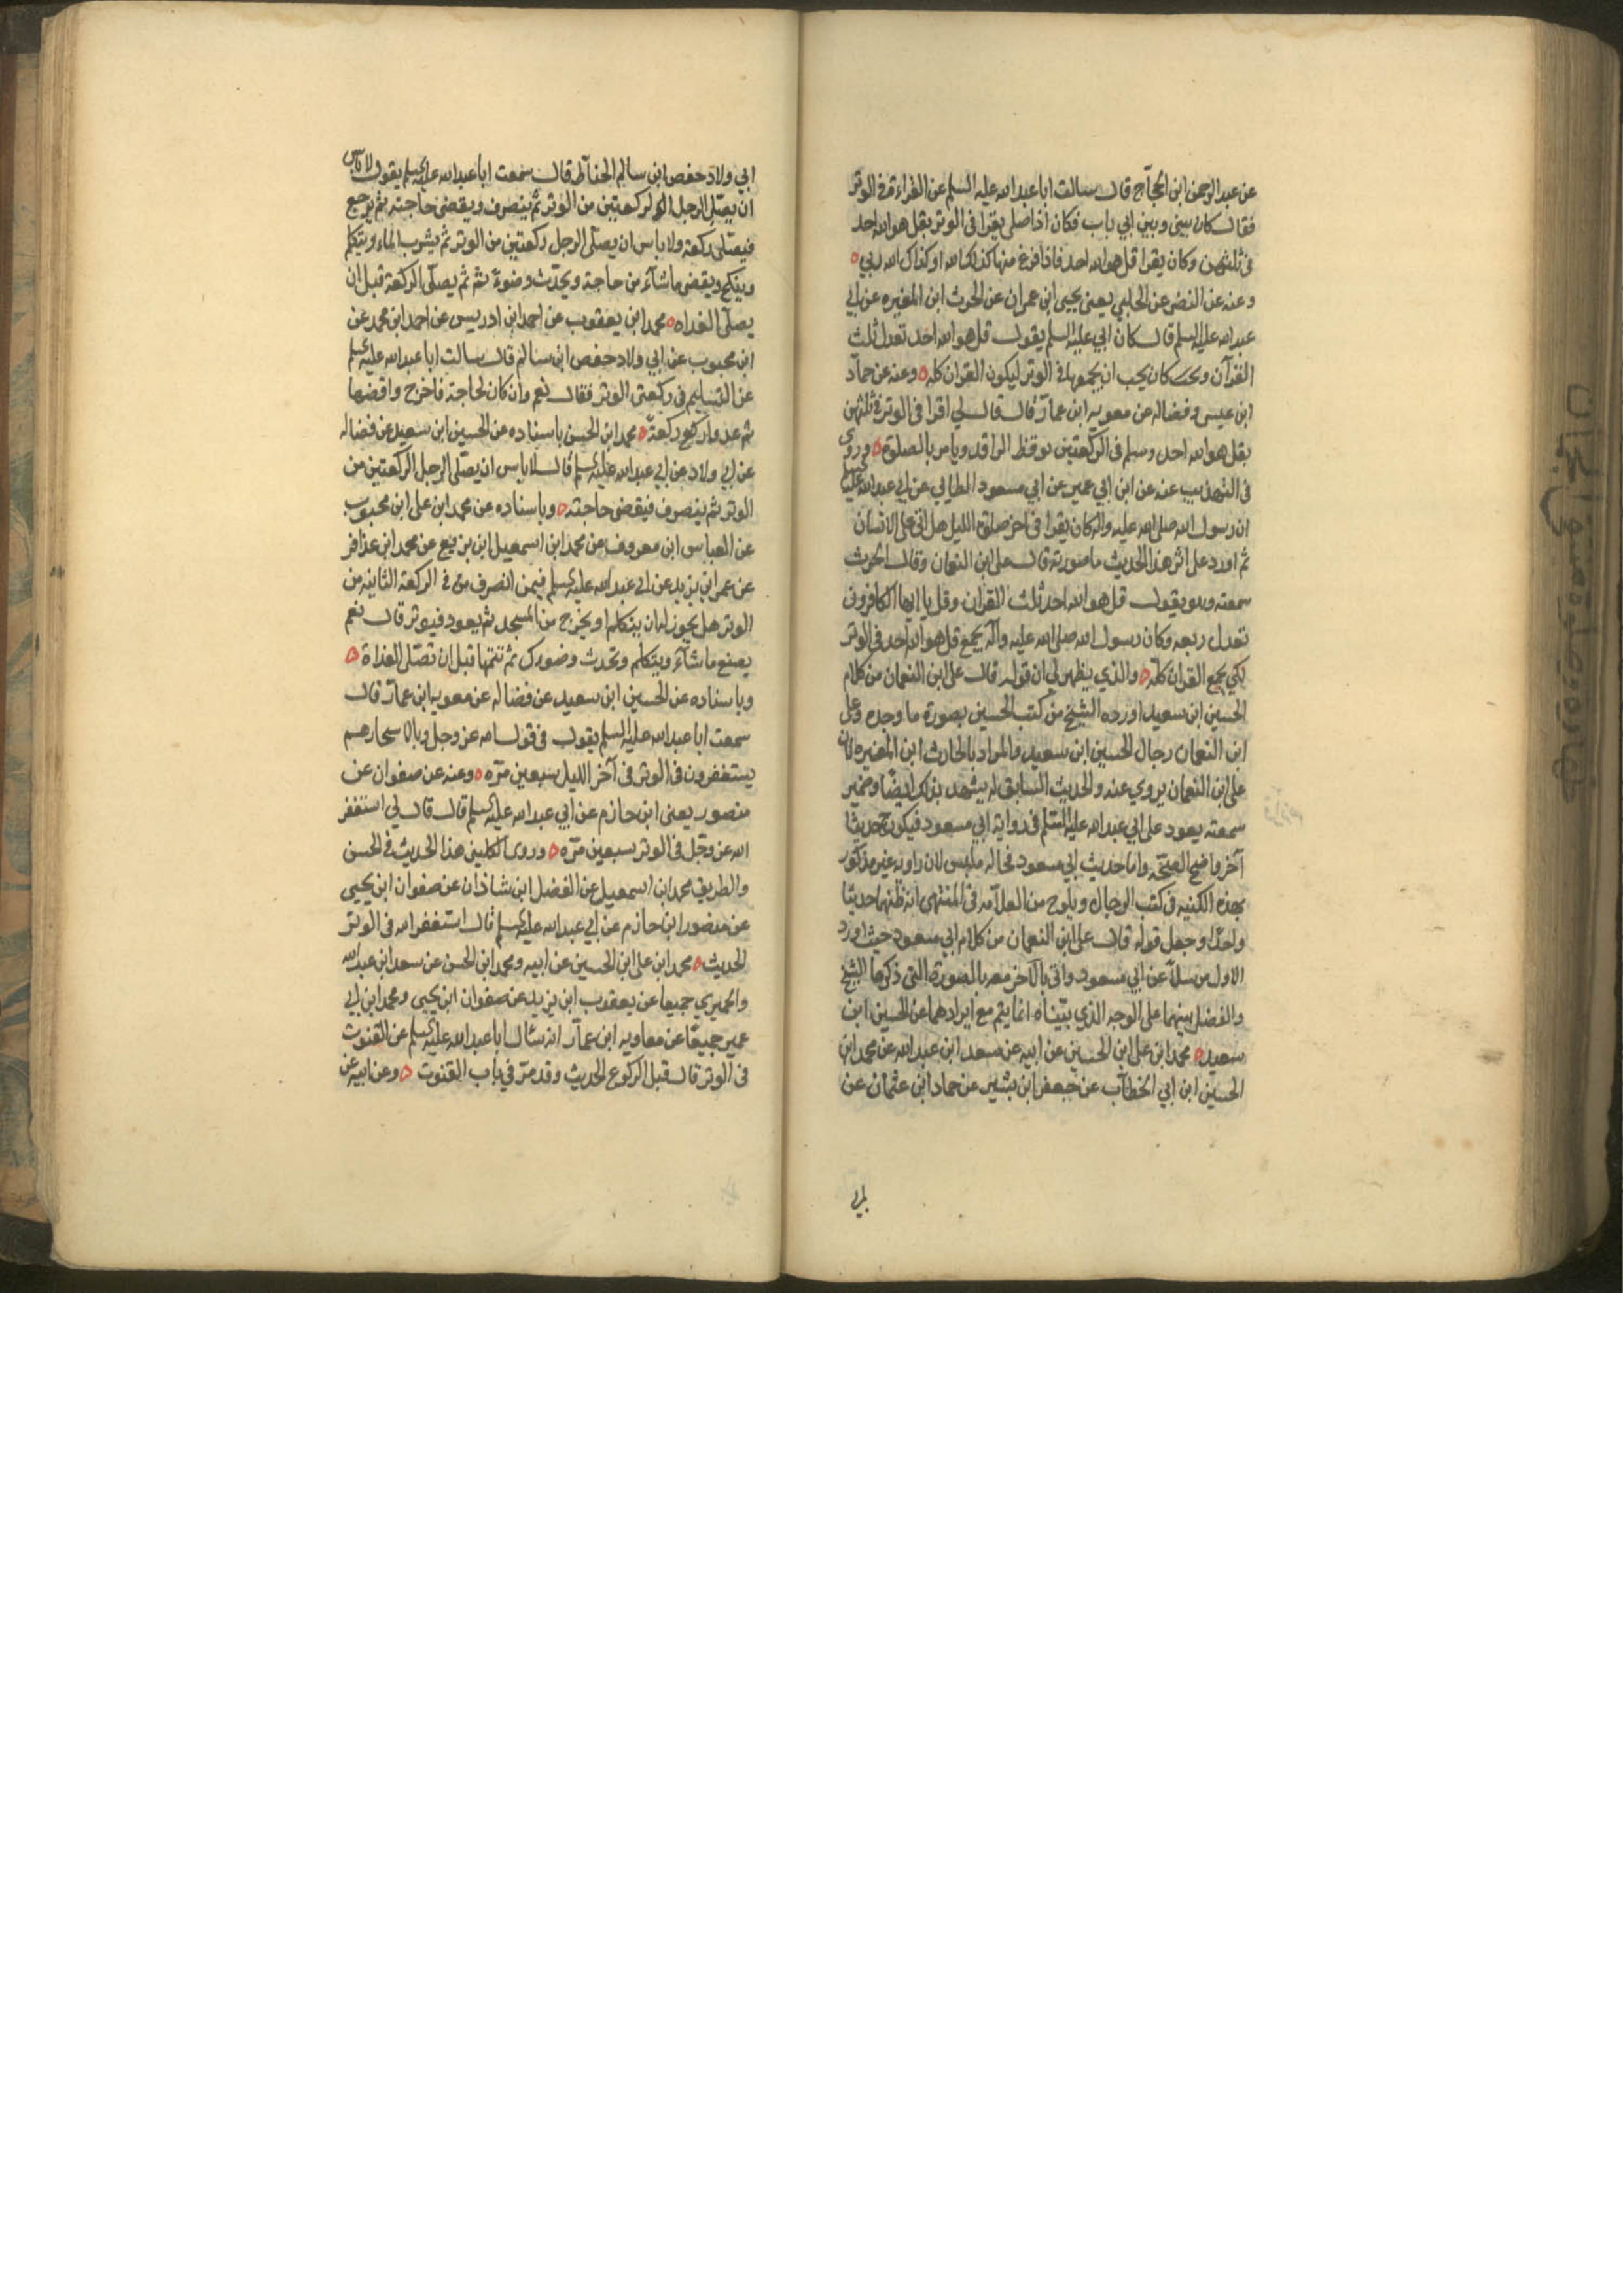 عن عبد الرحمن ابن الحجاج قال سالت ابا عبد الله عليه السلم عن القراءة في الوتر
فقال كان بيني وبين ابي باب فكان اذا صلى يقرا في الوتر بقل هو الله احد
في ثلثهن وكان يقرا قل هو الله احد فاذا فرغ منها كذلك الله او كذاك الله ربي
وعنه عن النضر عن الحلبي يعني يحيى ابن عمران عن الحرث ابن المغيره عن ابي
عبد الله عليه السلم قال كان ابي عليه السلم يقول قل هو الله احد تعدل ثلث
القرآن وكان يحب ان يجمعها في الوتر ليكون القران كله وعنه عن حماد
ابن عيسى وفضاله عن معويه ابن عمار قال قال لي اقرا في الوتر في ثلثهن
بقل هو الله احد وسلم في الركعتين توقظ الراقد ويامر بالصلوة وروى
في التهذيب عنه عن ابن ابي عمير عن ابي مسعود الطايي عن ابي عبد الله عليه السلم
ان رسول الله صلى الله عليه واله كان يقرا في اخر صلوة الليل هل اتى على الانسان
ثم اورد على اثر هذا الحديث ما صورته قال على ابن النعمان وقال الحرث
سمعته وهو يقول قل هو الله احد ثلث القران وقل يا ايها الكافرون
تعدل ربعه وكان رسول الله صلى الله عليه وآله يجمع قل هو الله احد في الوتر
لكي يجمع القران كله والذي يظهر لي ان قوله قال على ابن النعمان من كلام
الحسين ابن سعيد اورده الشيخ من كتب الحسين بصورة ما وجده وعلى
ابن النعمان رجال الحسين ابن سعيد والمراد بالحارث ابن المغيره لان
على ابن النعمان يروي عنه والحديث السابق له يشهد بذلك ايضا وضمير
سمعته يعود على ابي عبد الله عليه السلم في رواية ابي مسعود فيكون ح حديثا
آخر واضح الصحة واما حديث ابي مسعود فحاله ملتبس لان راويه غير مذكور
بهذه الكنيه في كتب الرجال ويلوح من العلامه في المنتهى انه ظنهما حديثا
واحدا وجعل قوله قال على ابن النعمان من كلام ابي مسعود حيث اورد
الاول مرسلا عن ابي مسعود واتى بالآخر معه بالصورة التي ذكرها الشيخ
والفصل بينهما على الوجه الذي بيناه انما يتم مع ايرادهما عن الحسين ابن
سعيد محمد ابن على ابن الحسين عن ابيه عن سعد ابن عبد الله عن محمد ابن
الحسين ابن ابي الخطاب عن جعفر ابن بشير عن حماد ابن عثمان عن
ابي
ابي ولاد حفص ابن سالم الحناط قال سمعت ابا عبد الله عليه السلم يقول لا باس
ان يصلي الرجل الركعتين من الوتر ثم ينصرف ويقضى حاجته ثم يرجع
فيصلى ركعة ولا باس ان يصلى الرجل ركعتين من الوتر ثم يشرب الماء ويتكلم
وينكح ويقضى ما شآء من حاجة ويحدث وضوءً ثم يصلى الركعة قبل ان
يصلى الغداه محمد ابن يعقوب عن احمد ابن ادريس عن احمد ابن محمد عن
ابن محبوب عن ابي ولاد حفص ابن سالم قال سالت ابا عبد الله عليه السلم
عن التسليم في ركعتي الوتر فقال نعم وان كان لحاجة فاخرج واقضها
ثم عد واركع ركعة محمد ابن الحسن باسناده عن الحسين ابن سعيد عن فضاله
عن ابي ولاد عن ابي عبد الله عليه السلم قال لا باس ان يصلى الرجل الركعتين من
الوتر ثم ينصرف فيقضى حاجته وباسناده عن محمد ابن على ابن محبوب
عن العباس ابن معروف عن محمد ابن اسمعيل ابن بزيع عن محمد ابن عذافر
عن عمر ابن يزيد عن ابي عبد الله عليه السلم فيمن انصرف في الركعة الثانيه من
الوتر هل يجوز له ان يتكلم او يخرج من المسجد ثم يعود فيوتر قال نعم
يصنع ما شآء ويتكلم وتحدث وضورك ثم تتمها قبل ان تصلى الغداة
وباسناده عن الحسين ابن سعيد عن فضاله عن معويه ابن عمار قال
سمعت ابا عبد الله عليه السلم يقول في قول الله عز وجل وبالاسحار هم
يستغفرون في الوتر في آخر الليل سبعين مره وعنه عن صفوان عن
منصور يعنى ابن حازم عن ابي عبد الله عليه السلم قال قال لي استغفر
الله عز وجل في الوتر سبعين مره وروى الكليني هذا الحديث في الحسن
والطريق محمد ابن اسمعيل عن الفضل ابن شاذان عن صفوان ابن يحيى
عن منصور ابن حازم عن ابي عبد الله عليه السلم قال استغفر الله في الوتر
الحديث محمد ابن على ابن الحسين عن ابيه ومحمد ابن الحسن عن سعد ابن عبد الله
والحميري جميعا عن يعقوب ابن يزيد عن صفوان ابن يحيى ومحمد ابن ابي
عمير جميعًا عن معاويه ابن عمار انه سال ابا عبد الله عليه السلم عن القنوت
في الوتر قال قبل الركوع الحديث وقد مر في باب القنوت وعن ابيه عن